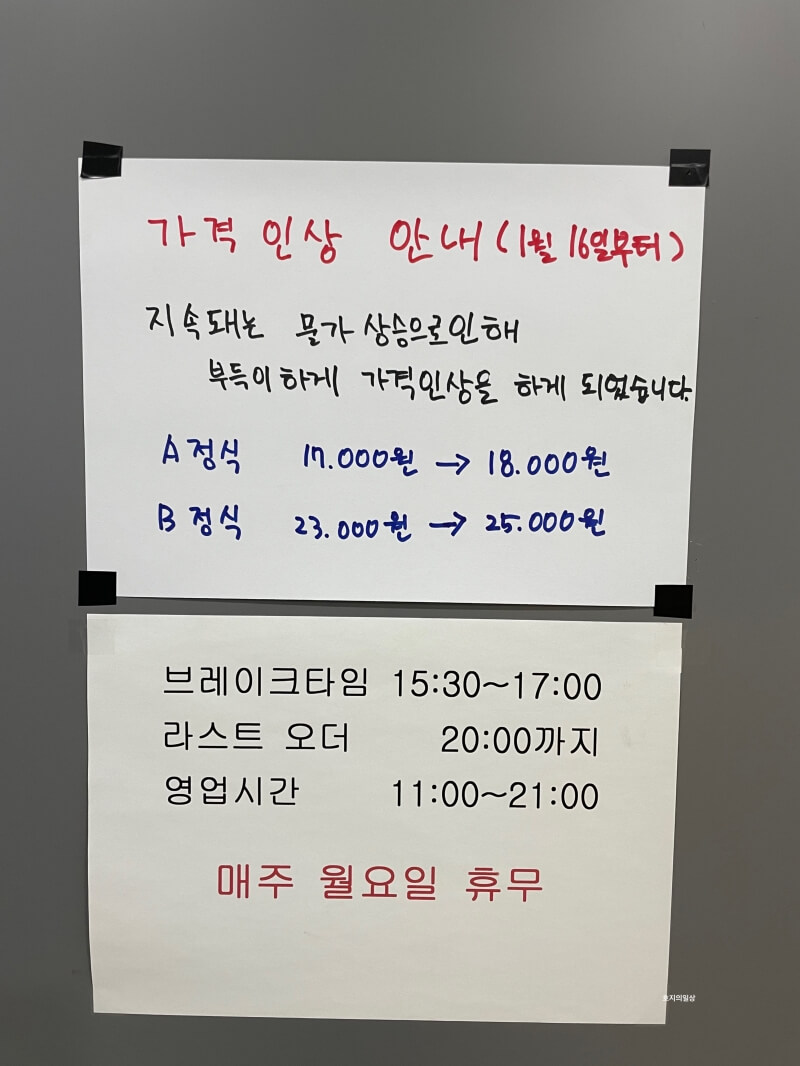 가격 인상 안내 (1월 16일부터)
지속돼는 물가 상승으로인해
부득이하게 가격인상을 하게 되었습니다.
A 정식 17.000원 → 18.000원
B 정식 23.000원 → 25.000원
브레이크타임 15:30~17:00
라스트 오더 20:00까지
영업시간 11:00~21:00
매주 월요일 휴무
호지의일상